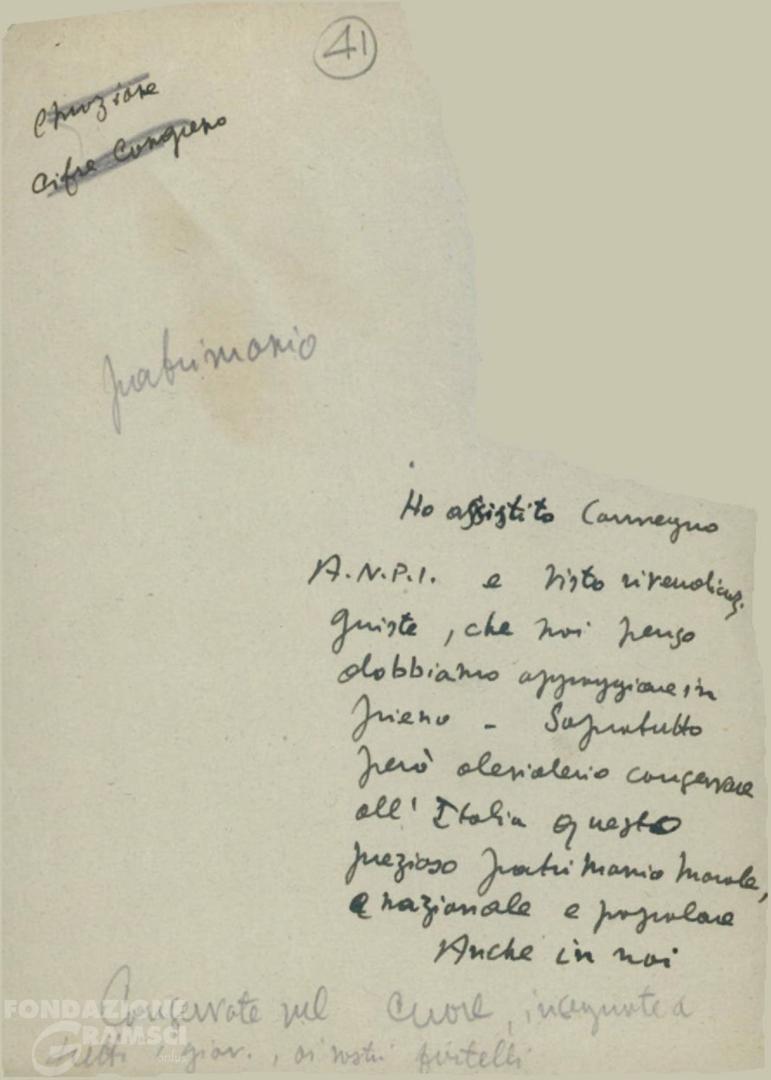 41
Emozione
Cifre Congresso
patrimonio
Ho assistito Convegno
A.N.P.I. e visto rivendicaz.
giuste, che noi penso
dobbiamo appoggiare in
pieno - Sopratutto
però desiderio conservare
all'Italia questo
prezioso patrimonio morale,
e nazionale e popolare
Anche in noi
Conservate nel cuore, insegnate a
tutti giov., ai vostri fratelli
FONDAZIONE
GRAMSCI
onlus